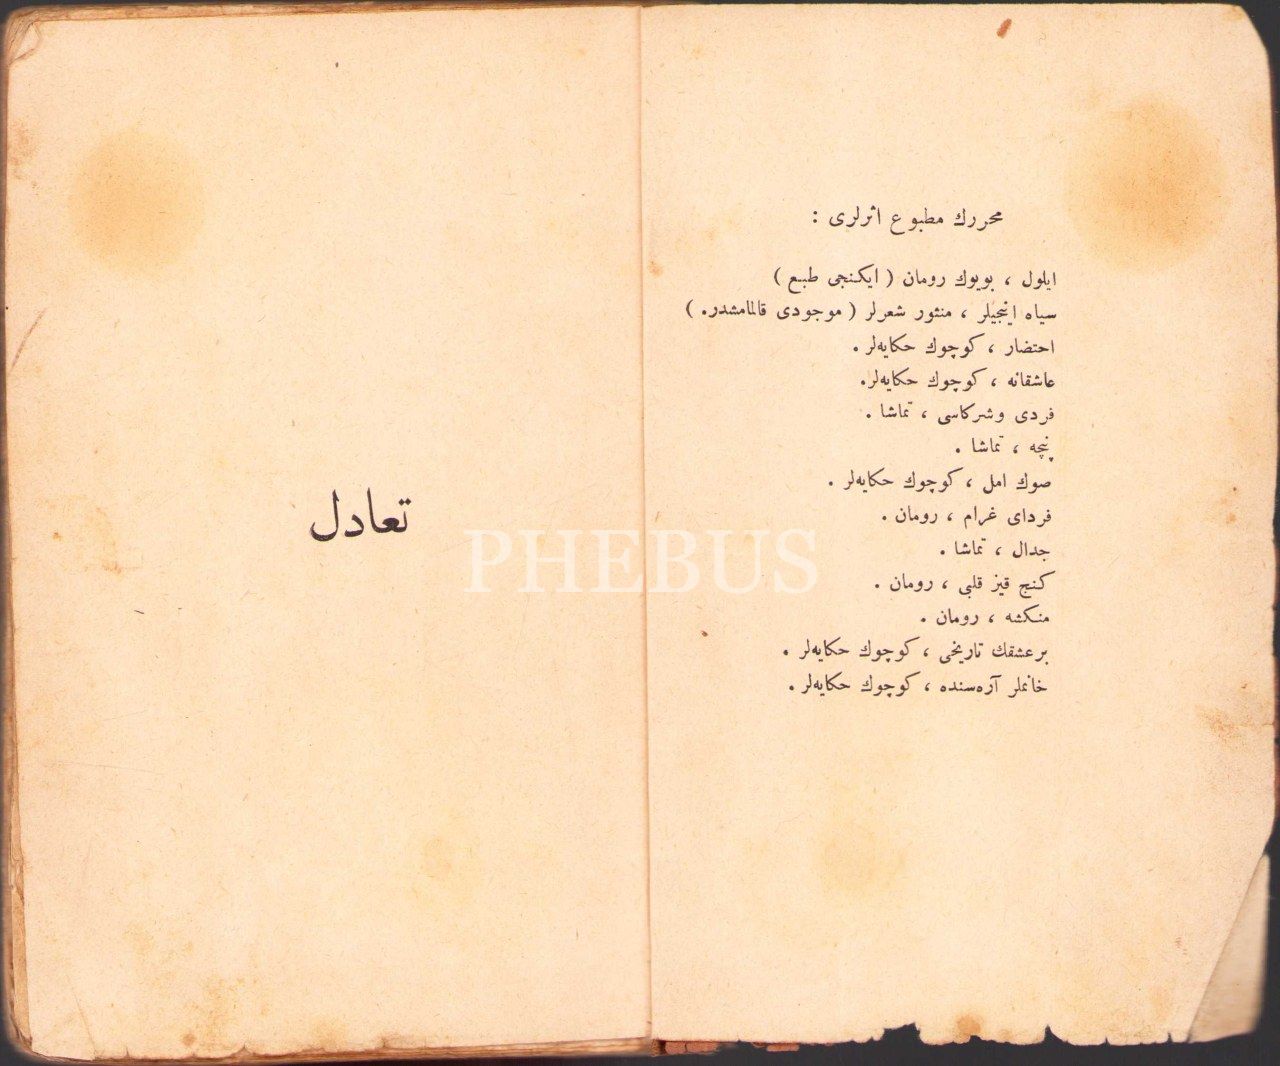 محررك مطبوع اثرلری :
ايلول ، بويوك رومان ( ايكنجی طبع )
سياه اينجيلر ، منثور شعرلر ( موجودی قالمامشدر. )
احتضار ، كوچوك حكايه‌لر .
عاشقانه ، كوچوك حكايه‌لر.
فردی وشركاسی ، تماشا .
پنچه ، تماشا .
صوك امل ، كوچوك حكايه‌لر .
فردای غرام ، رومان .
جدال ، تماشا .
كنج قيز قلبی ، رومان .
منكشه ، رومان .
بر عشقك تاريخی ، كوچوك حكايه‌لر .
خانملر آره‌سنده ، كوچوك حكايه‌لر .
تعادل
PHEBUS